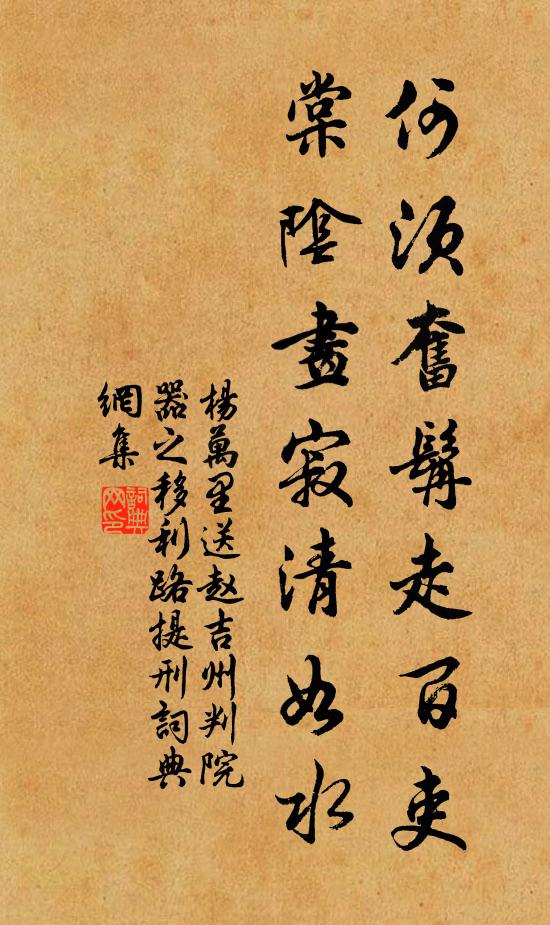 何須奮髯走百吏
棠陰晝寂清如水
楊萬里送赵吉州判院
器之移利路提刑詞典
網集
詞典
网印